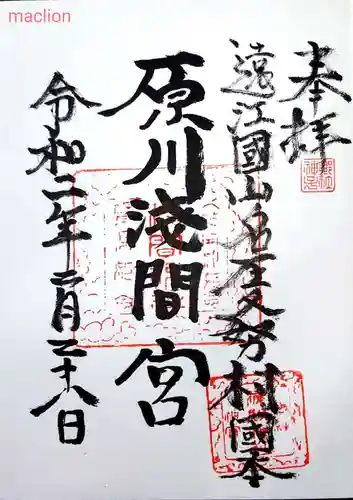 maclion
奉拝
遠江國山名庄久努村國本
原川浅間宮
令和二年二月二十八日